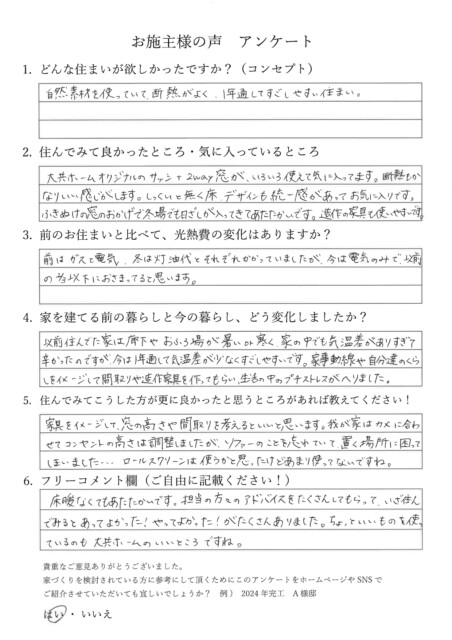 お施主様の声　アンケート
1. どんな住まいが欲しかったですか？（コンセプト）
自然素材を使っていて、断熱がよく、1年通してすごしやすい住まい。
2. 住んでみて良かったところ・気に入っているところ
大共ホームオリジナルのサッシ＋2way窓が、いろいろ使えて気に入ってます。断熱もか
なりいい感じがします。しっくいと無く床 デザインも統一感があってお気に入りです。
ふきぬけの窓のおかげで冬場でも日ざしが入ってきてあたたかいです。造作の家具も使いやすいです。
3. 前のお住まいと比べて、光熱費の変化はありますか？
前はガスと電気、冬は灯油代とそれぞれかかっていましたが、今は電気のみで、以前
の 以下におさまってると思います。
4. 家を建てる前の暮らしと今の暮らし、どう変化しましたか？
以前住んでた家は廊下やおふろ場が暑いor寒く、家の中でも気温差がありすぎて
辛かったのですが、今は1年通して気温差が少なくすごしやすいです。家事動線や自分達のくら
しをイメージして間取りや造作家具を作ってもらい、生活の中のプチストレスがへりました。
5. 住んでみてこうした方が更に良かったと思うところがあれば教えてください！
家具をイメージして、窓の高さや間取りを考えるといいと思います。我が家はカメに合わ
せてコンセントの高さは調整しましたが、ソファーのことを忘れていて、置く場所に困って
しまいました… ロールスクリーンは使うかと思ったけどあまり使ってないですね。
6. フリーコメント欄（ご自由に記載ください！）
床暖なくてもあたたかいです。担当の方々のアドバイスをたくさんしてもらって、いざ住ん
でみるとあってよかった！やってよかった！がたくさんありました。ちょっといいものを使っ
ているのも大共ホームのいいところですね。
貴重なご意見ありがとうございました。
家づくりを検討されている方に参考にして頂くためにこのアンケートをホームページやSNSで
ご紹介させていただいても宜しいでしょうか？　例）　2024年完工　A様邸
はい ・ いいえ